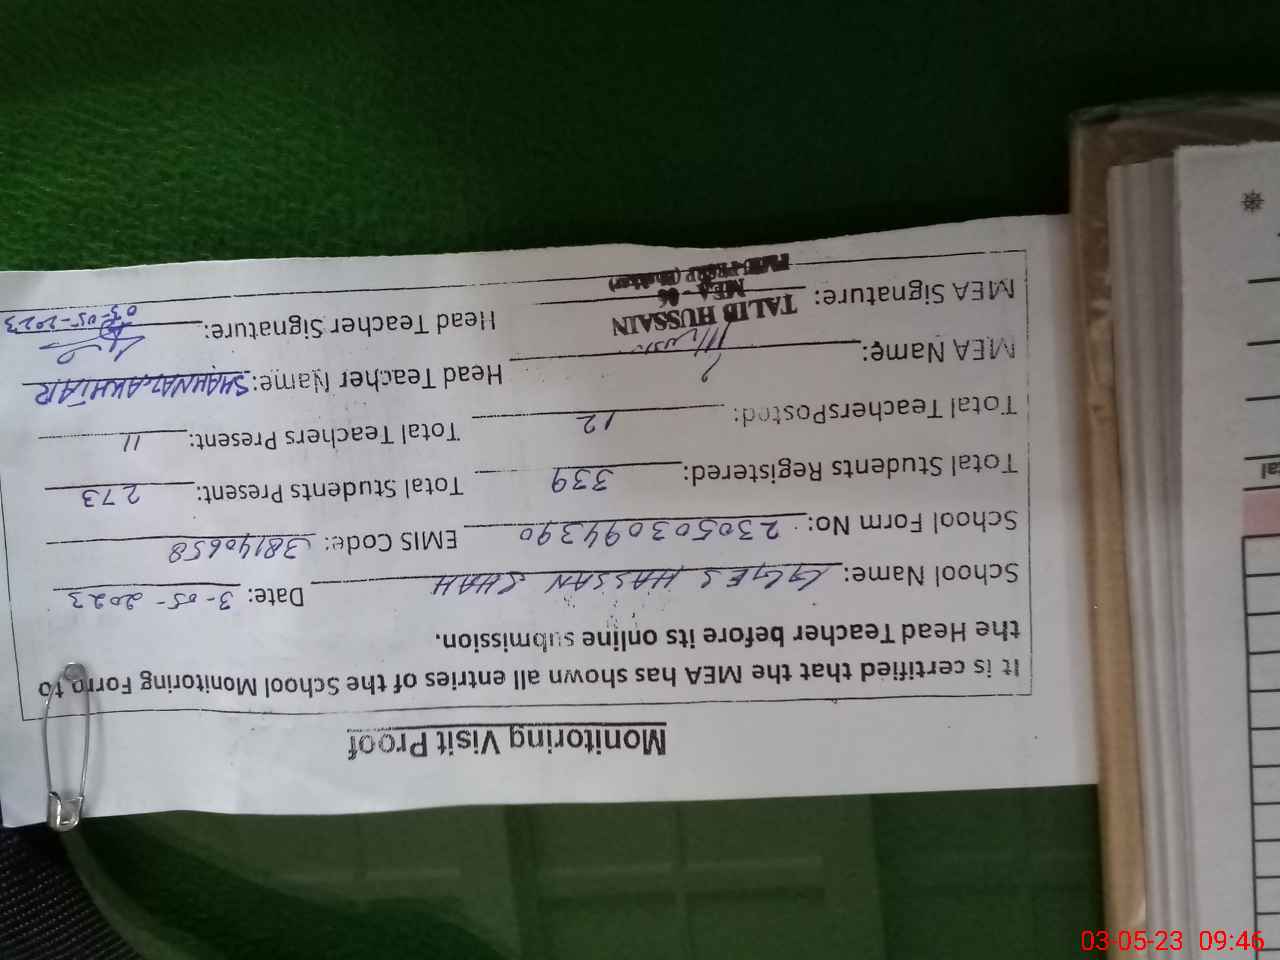 Monitoring Visit Proof
It is certified that the MEA has shown all entries of the School Monitoring Form to
the Head Teacher before its online submission.
School Name: GGES HASSAN SHAH Date: 3-05-2023
School Form No: 230503094390 EMIS Code: 38140658
Total Students Registered: 339 Total Students Present: 273
Total TeachersPosted: 12 Total Teachers Present: 11
MEA Name: Head Teacher Name: SHAHNAZ AKHTAR
MEA Signature: Head Teacher Signature:
03-05-2023
TALIB HUSSAIN
MEA - 06
03-05-23 09:46